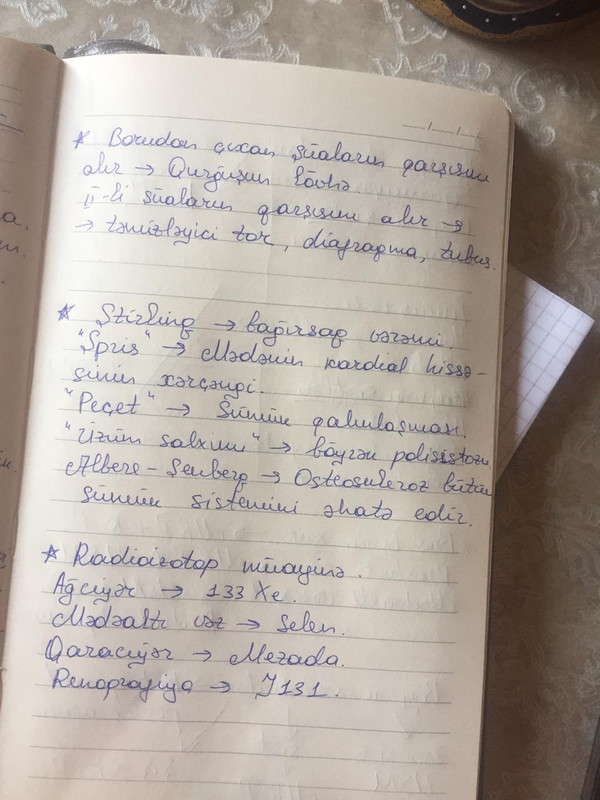 * Borudan çıxan şüaların qarşısını
alır → Qurğuşun lövhə.
II-li şüaların qarşısını alır →
→ təmizləyici tor, diafraqma, tubus.
* Stirling → bağırsaq vərəmi.
"Şpris" → Mədənin kardial hissə-
sinin xərçəngi.
"Peçet" → Sümük qalınlaşması.
"Üzüm salxımı" → böyrək polisistozu
Albere-Şenberg → Osteoskleroz bütün
sümük sistemini əhatə edir.
* Radioizotop müayinə.
Ağciyər → 133 Xe.
Mədəaltı vəz → Selen.
Qaraciyər → Mezada.
Renoqrafiya → J131.